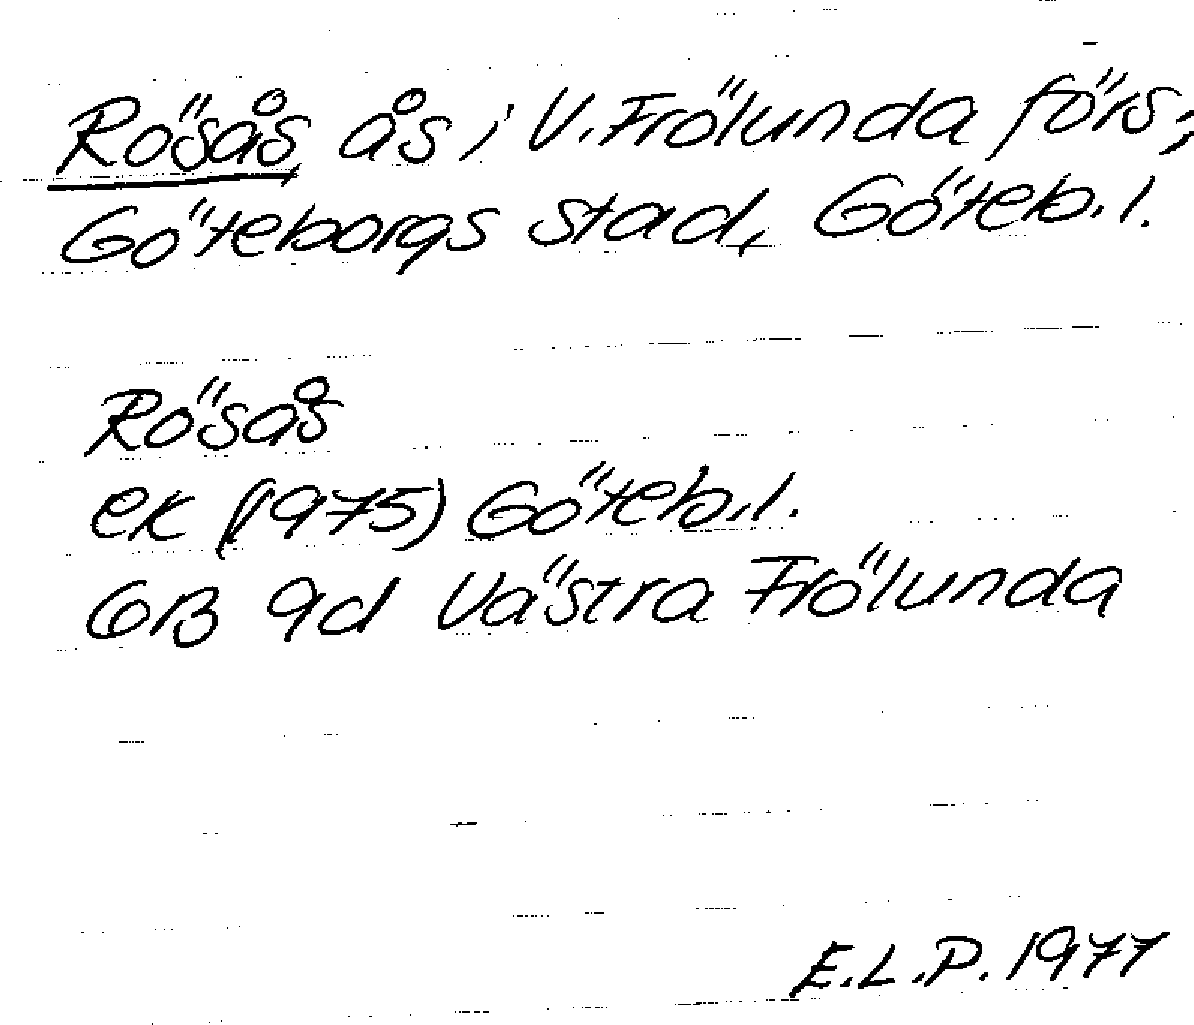 Rösås, ås i V. Frölunda förs;
Göteborgs stad, Göteb.l.
Rösås
ek (1975) Göteb.l.
6B 9d Västra Frölunda
E.L.P. 1977